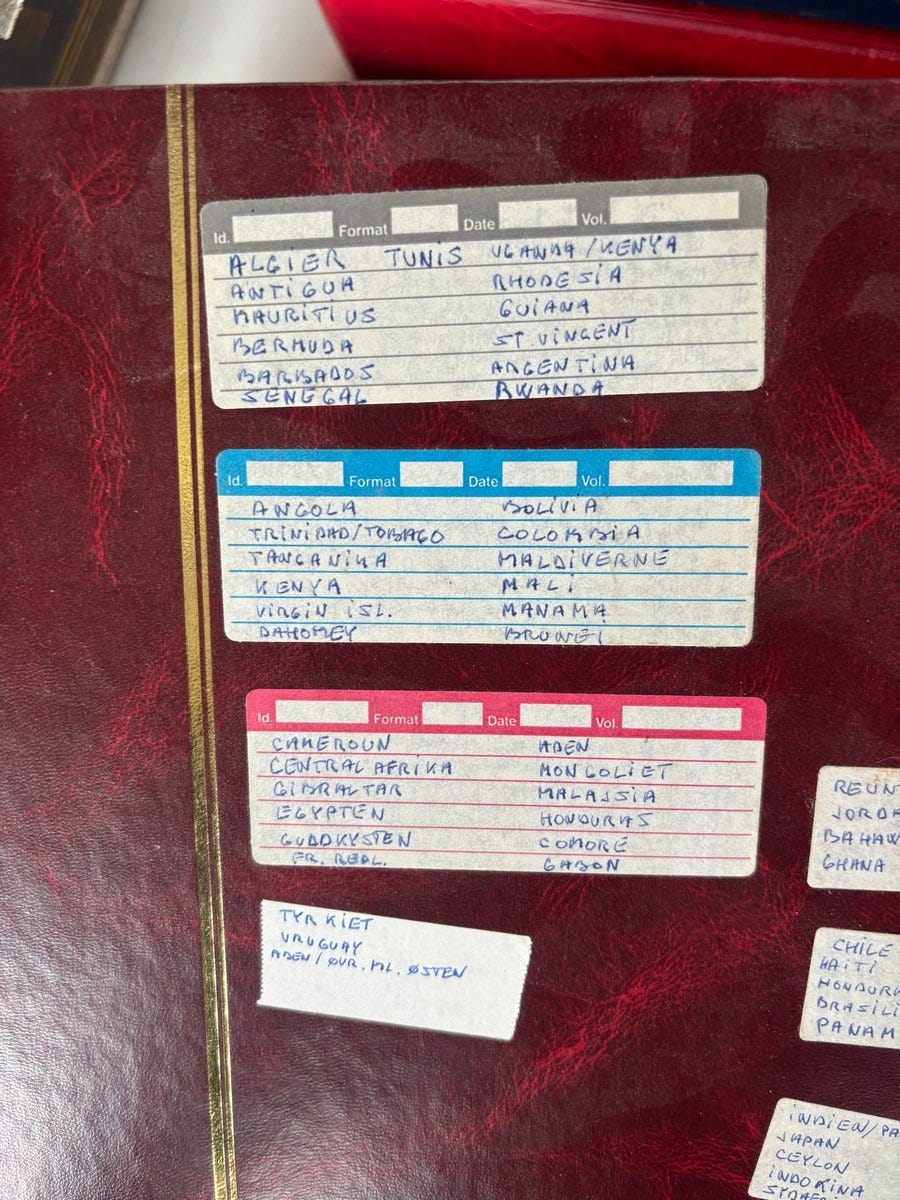 Id. Format Date Vol.
ALGIER TUNIS UGANDA/KENYA
ANTIGUA RHODESIA
MAURITIUS GUIANA
BERMUDA ST. VINCENT
BARBADOS ARGENTINA
SENEGAL RWANDA
Id. Format Date Vol.
ANGOLA BOLIVIA
TRINIDAD/TOBAGO COLOMBIA
TANGANIKA MALDIVERNE
KENYA MALI
VIRGIN ISL. MANAMA
DAHOMEY BRUNEI
Id. Format Date Vol.
CAMEROUN ADEN
CENTRAL AFRIKA MONGOLIET
GIBRALTAR MALAJSIA
EGYPTEN HONDURAS
GULDKYSTEN COMORE
FR. REBL. GABON
TYRKIET
URUGUAY
ADEN/ØVR. ML. ØSTEN
REUN
JORDA
BAHAW
GHANA
CHILE
HAITI
HONDURA
BRASILI
PANAM
INDIEN/PA
JAPAN
CEYLON
INDOKINA